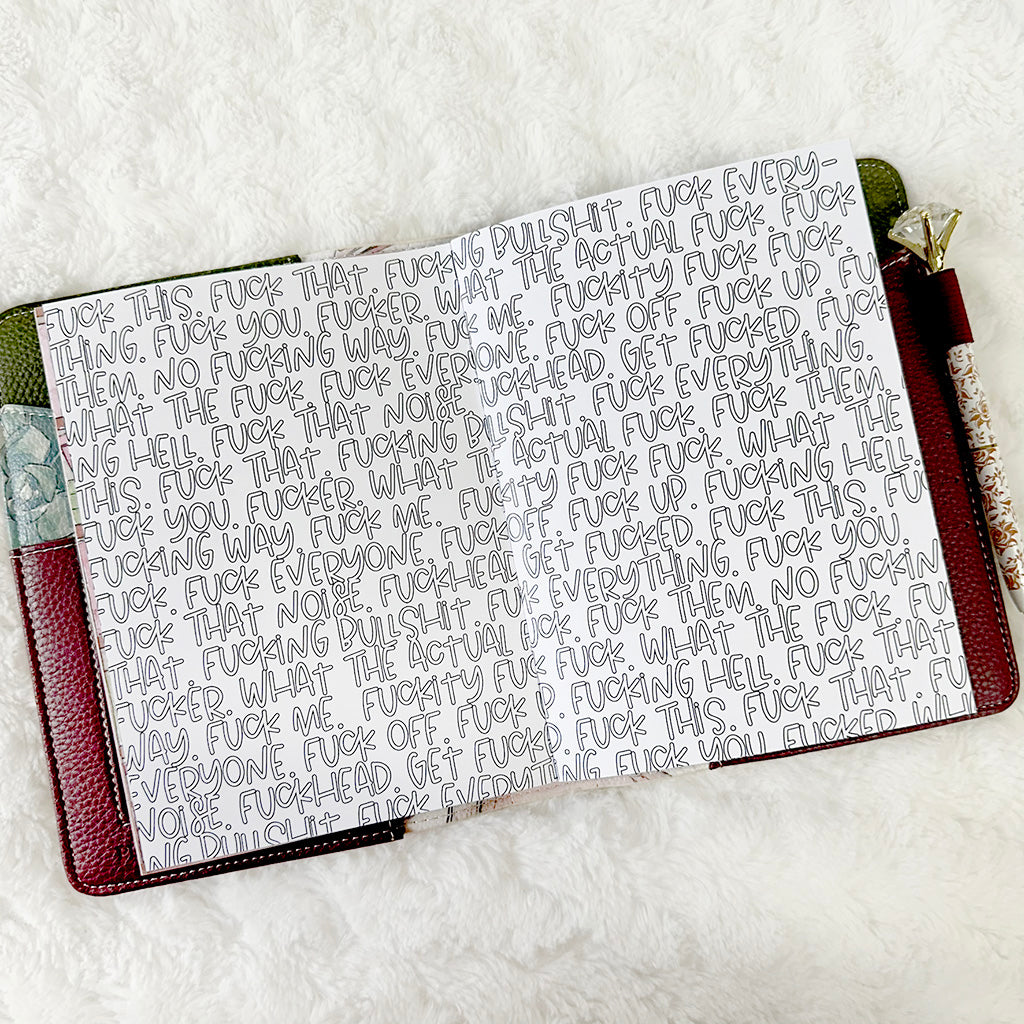 FUCK THIS. FUCK THAT. FUCKING BULLSHIT. FUCK EVERY-
THING. FUCK YOU. FUCKER. WHAT THE ACTUAL FUCK. FUCK
THEM. NO FUCKING WAY. FUCK ME. FUCKITY FUCK FUCK.
WHAT THE FUCK. FUCK EVERYONE. FUCK OFF. FUCK UP. FU
NG HELL. FUCK THAT NOISE. FUCKHEAD. GET FUCKED. FUCK
THIS. FUCK THAT. FUCKING BULLSHIT. FUCK EVERYTHING.
FUCK YOU. FUCKER. WHAT THE ACTUAL FUCK. FUCK THEM.
FUCKING WAY. FUCK ME. FUCKITY FUCK FUCK. WHAT THE
FUCK. FUCK EVERYONE. FUCK OFF. FUCK UP. FUCKING HELL.
FUCK THAT NOISE. FUCKHEAD. GET FUCKED. FUCK THIS. FU
THAT. FUCKING BULLSHIT. FUCK EVERYTHING. FUCK YOU.
FUCKER. WHAT THE ACTUAL FUCK. FUCK THEM. NO FUCKIN
WAY. FUCK ME. FUCKITY FUCK FUCK. WHAT THE FUCK. FU
EVERYONE. FUCK OFF. FUCK UP. FUCKING HELL. FUCK THAT
NOISE. FUCKHEAD. GET FUCKED. FUCK THIS. FUCK THAT. FU
NG BULLSHIT. FUCK EVERYTHING FUCK YOU. FUCKER. WH